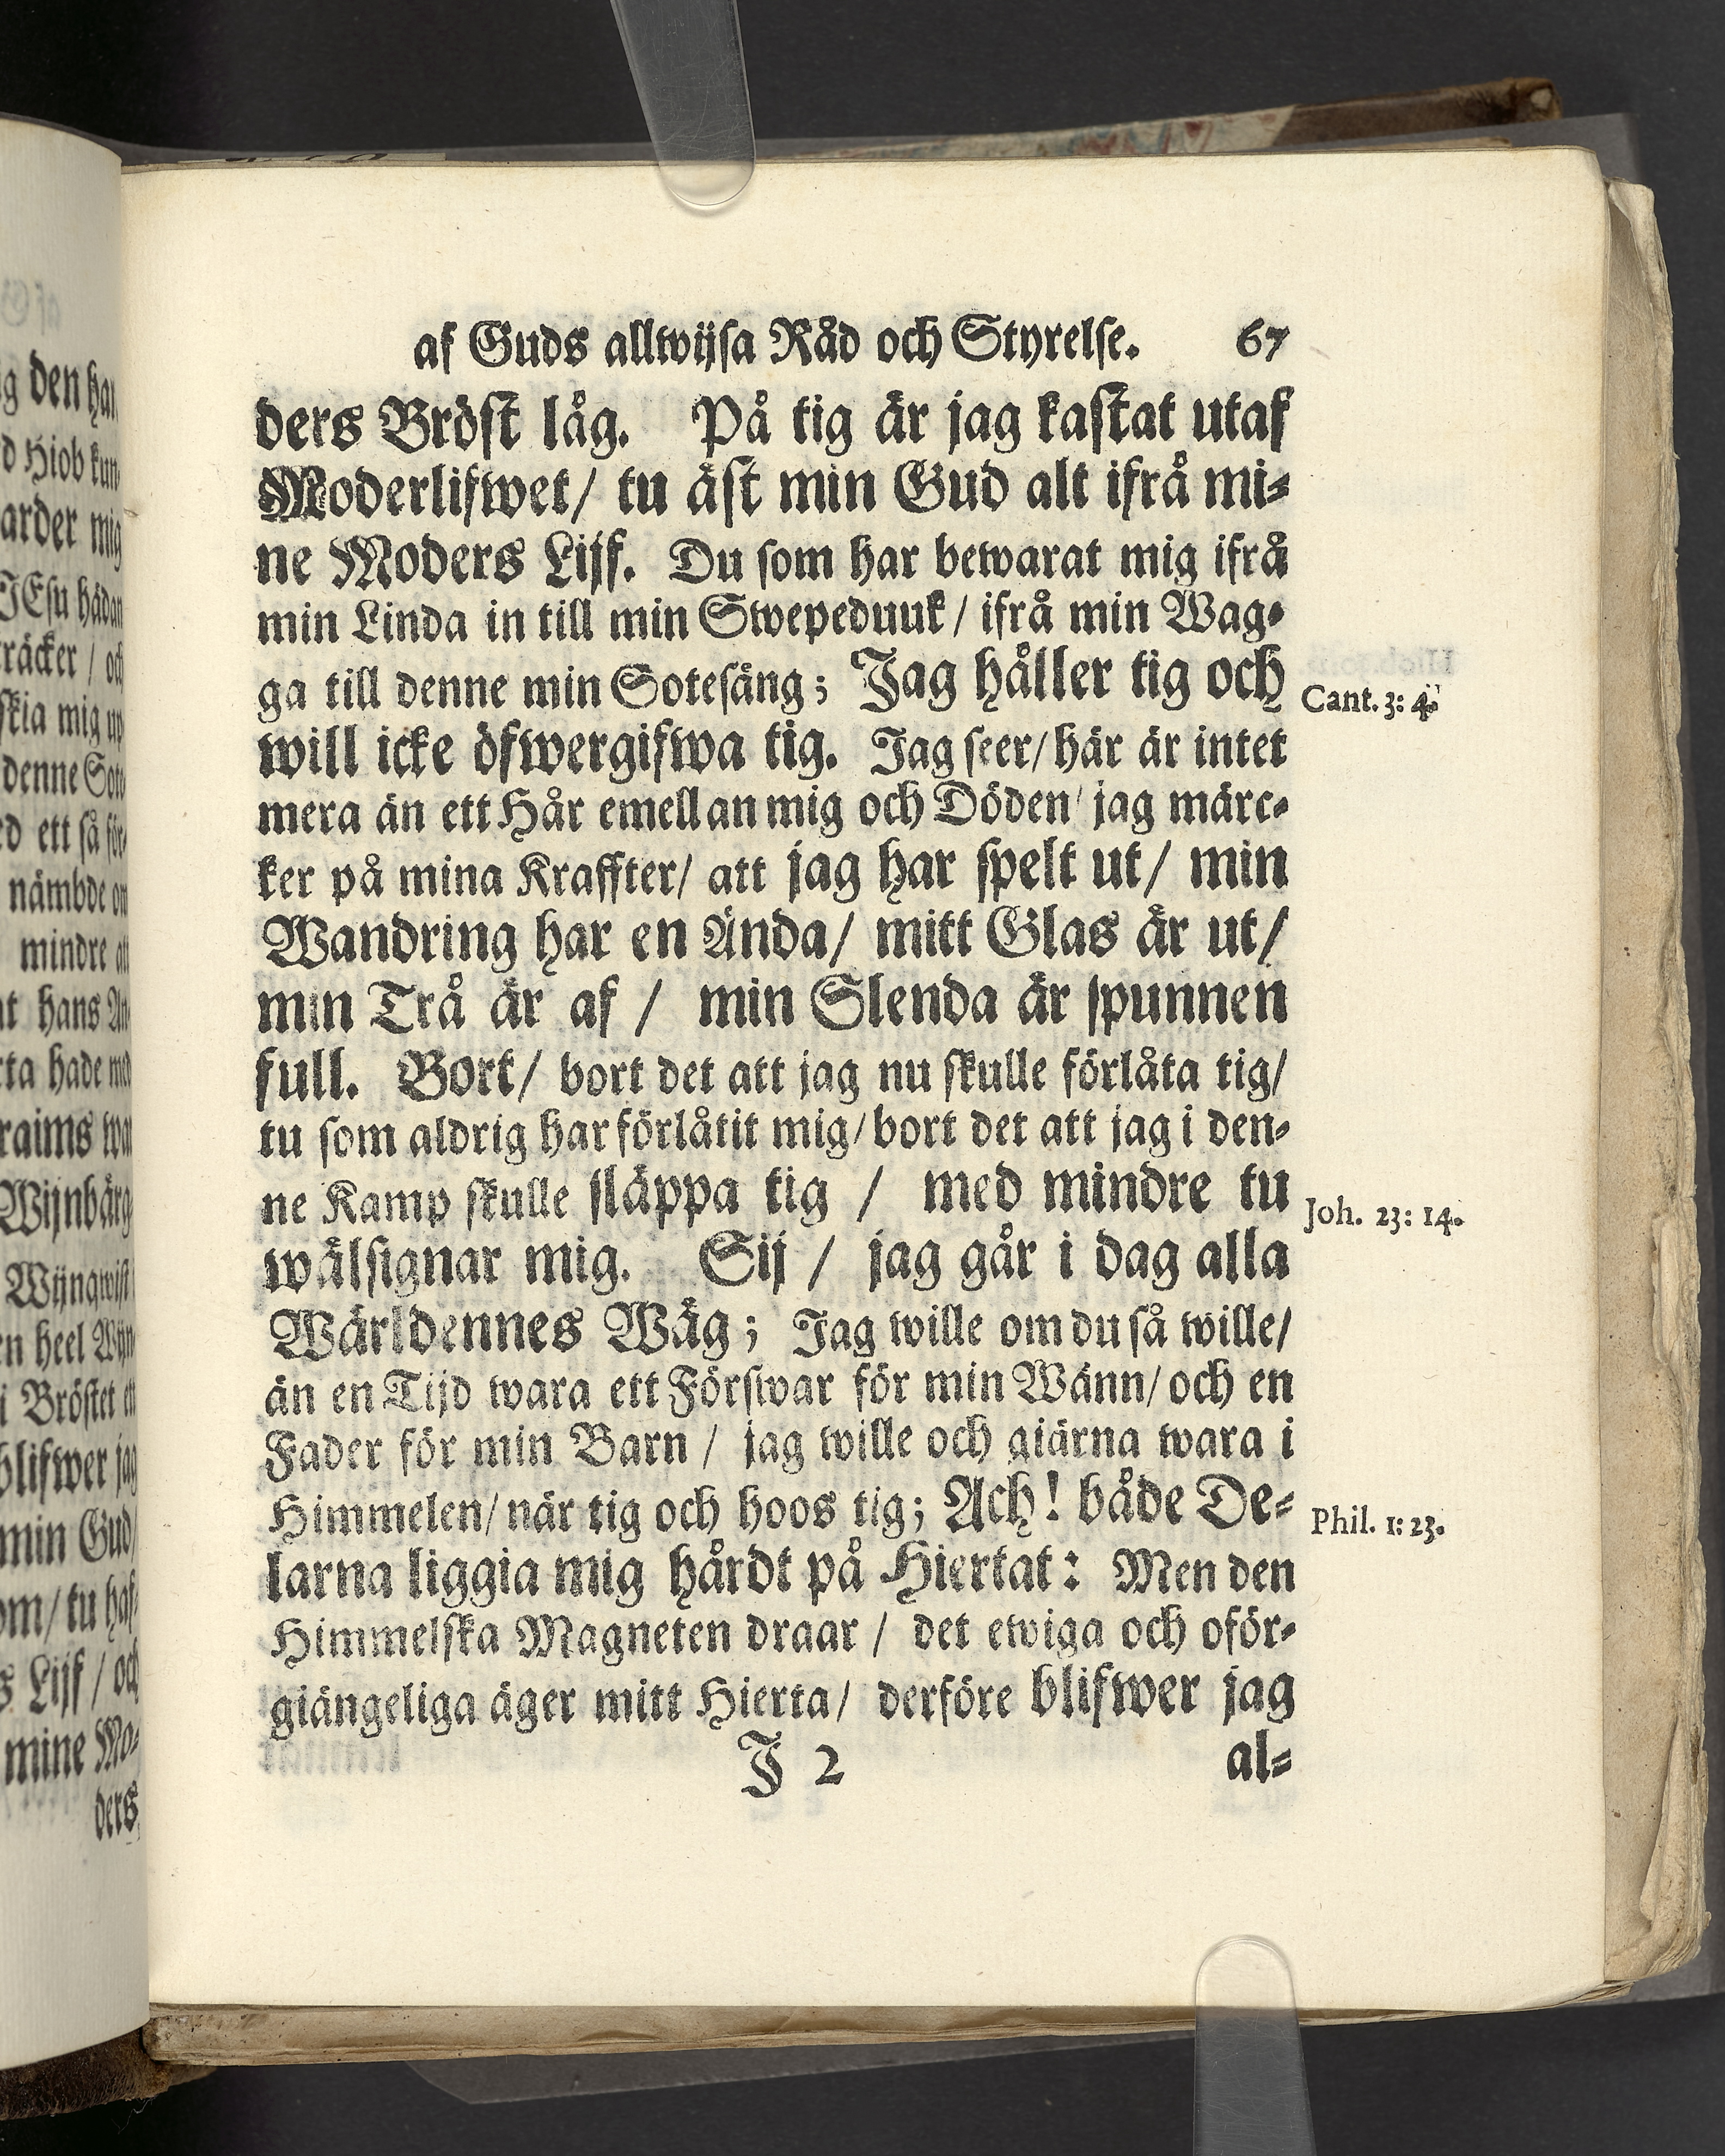 af Guds allwijsa Råd och Styrelse. 67
ders Bröst låg. På tig är jag kastat utaf
Moderlifwet/ tu äst min Gud alt ifrå mi-
ne Moders Lijf. Du som har bewarat mig ifrå
min Linda in till min Swepeduuk/ ifrå min Wag-
ga till denne min Sotesäng; Jag håller tig och
Cant. 3: 4.
will icke öfwergifwa tig. Jag seer/ här är intet
mera än ett Hår emellan mig och Döden/ jag märc-
ker på mina Kraffter/ att jag har spelt ut/ min
Wandring har en Ända/ mitt Glas är ut/
min Trå är af / min Slenda är spunnen
full. Bort/ bort det att jag nu skulle förlåta tig/
tu som aldrig har förlåtit mig/ bort det att jag i den-
ne Kamp skulle släppa tig / med mindre tu
Joh. 23: 14.
wälsignar mig. Sij / jag går i dag alla
Wärldennes Wäg; Jag wille om du så wille/
än en Tijd wara ett Förswar för min Wänn/ och en
Fader för min Barn / jag wille och giärna wara i
Himmelen/ när tig och hoos tig; Ach! både De-
Phil. 1: 23.
larna liggia mig hårdt på Hiertat: Men den
Himmelska Magneten draar / det ewiga och oför-
giängeliga äger mitt Hierta/ derföre blifwer jag
J 2 al-